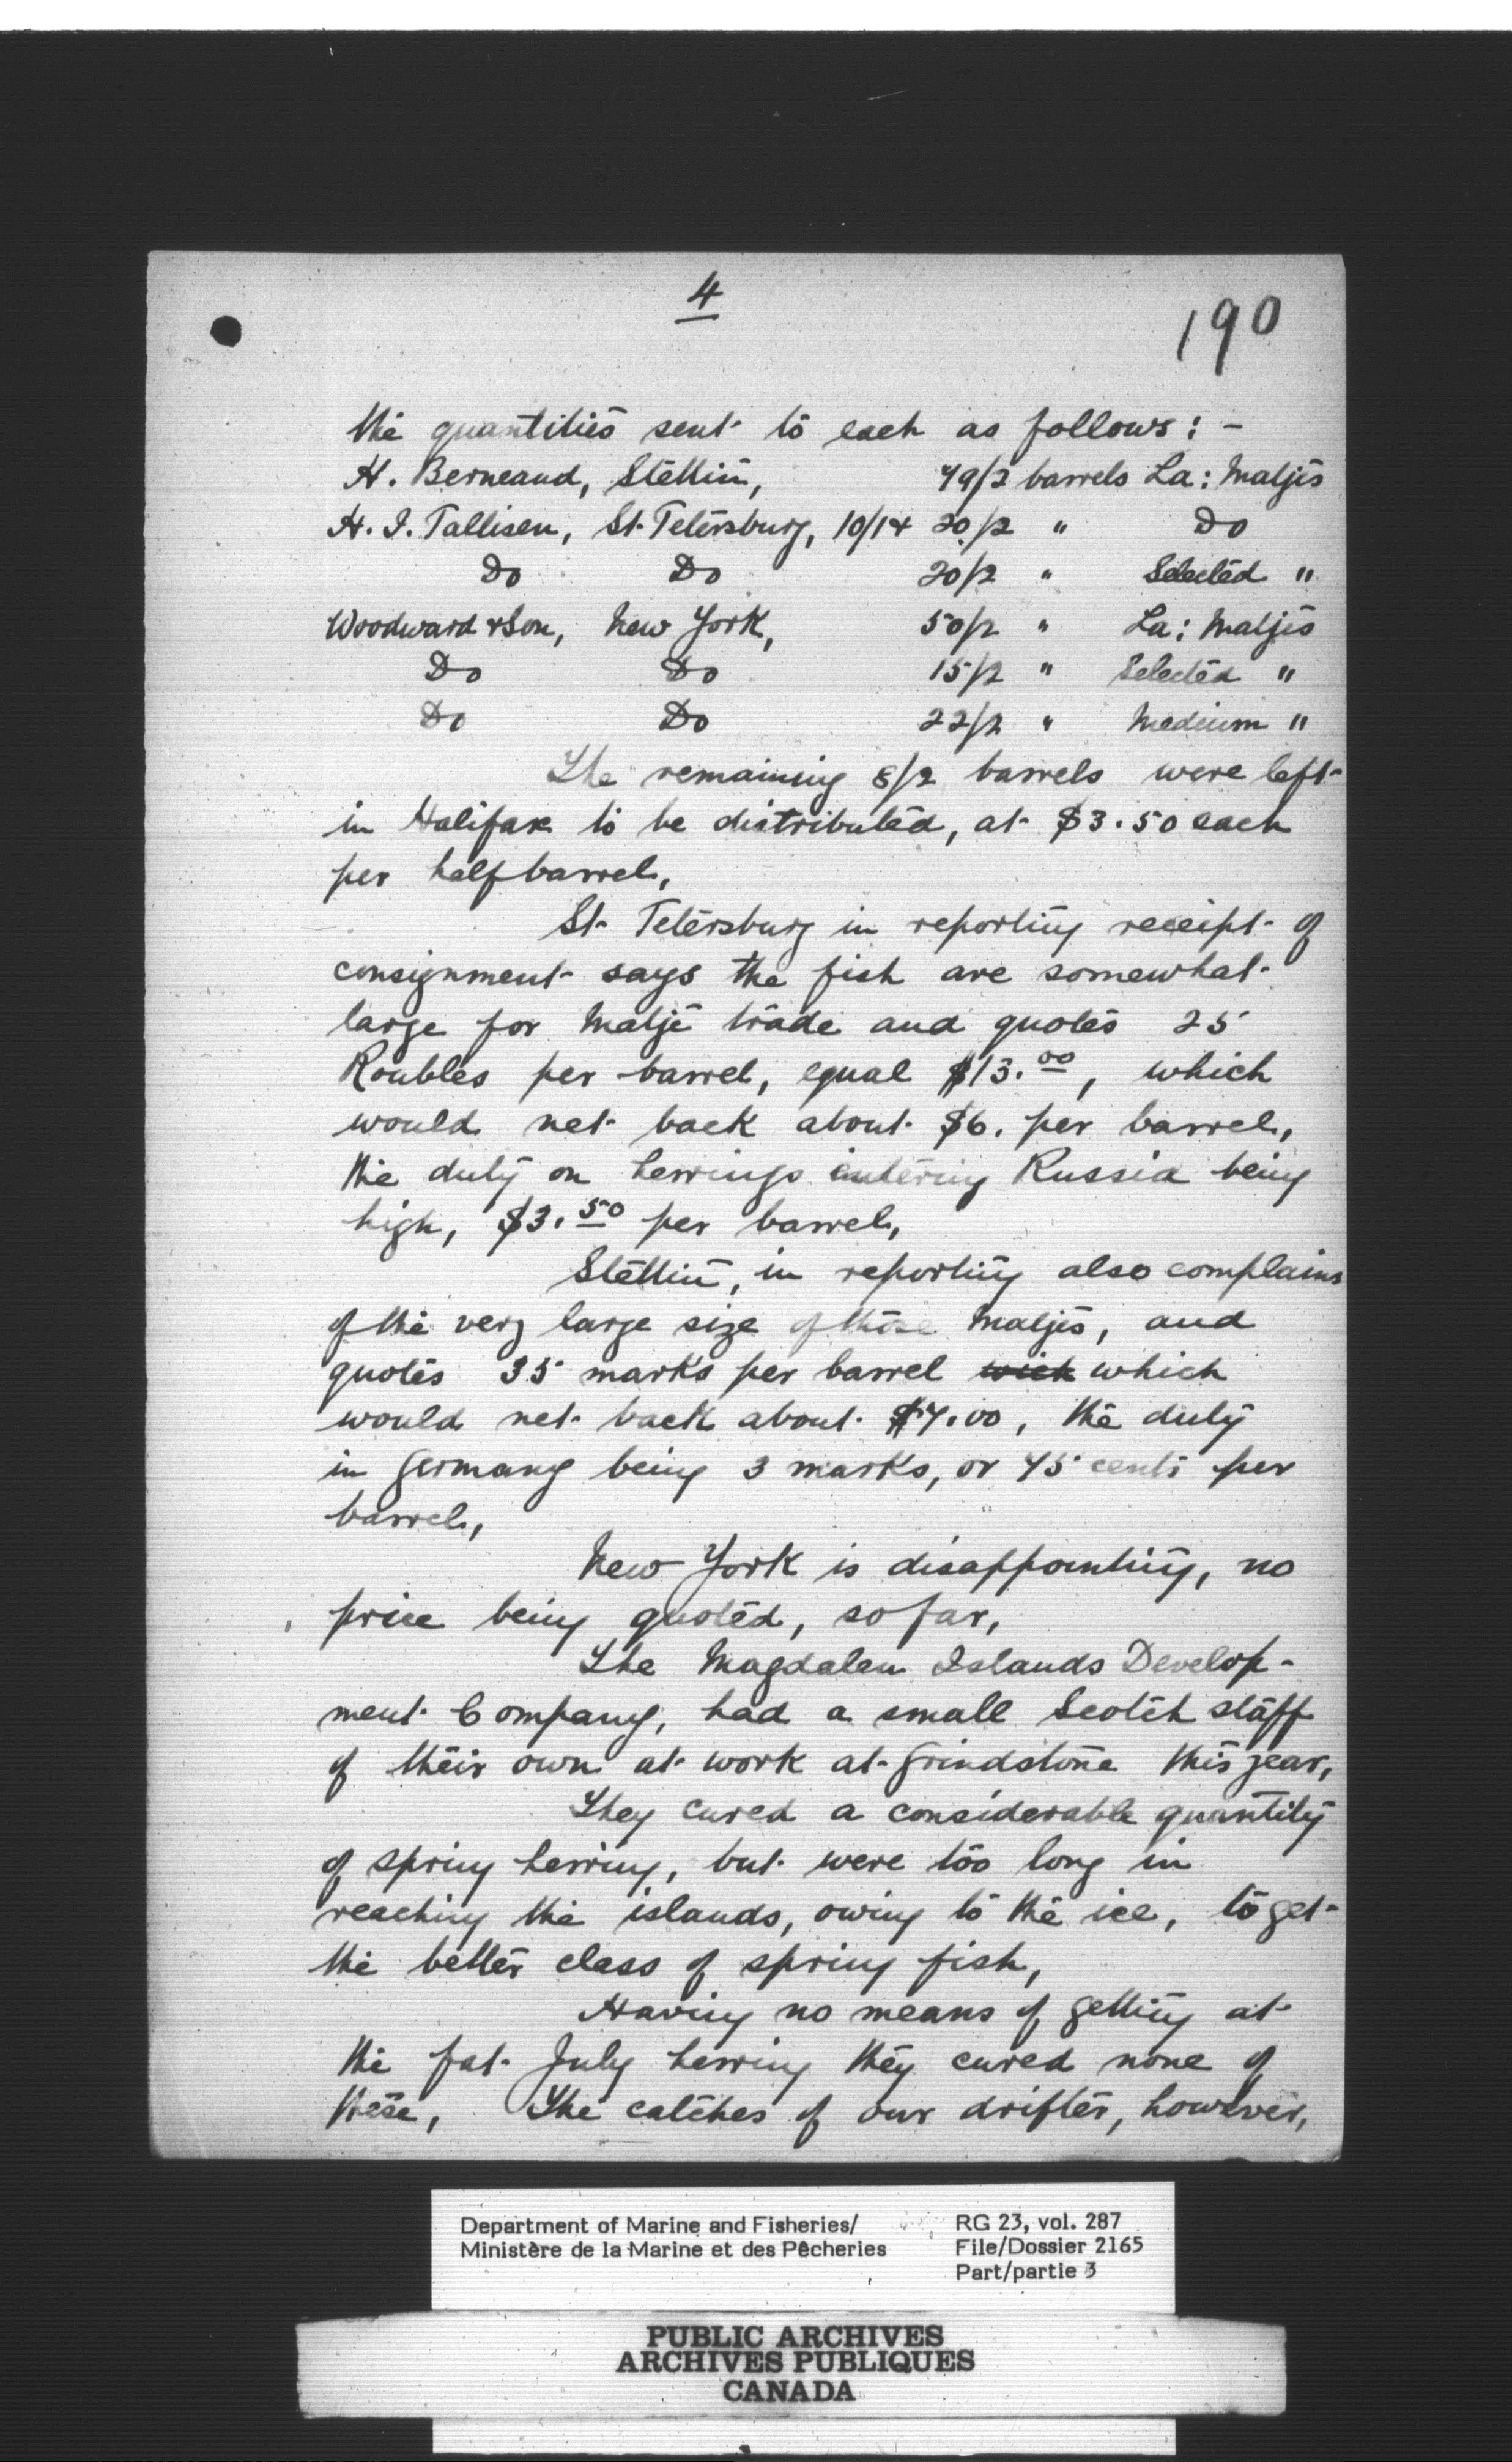 4
190
the quantities sent to each as follows: -
H. Berneaud, Stettin, 79/2 barrels La: Matjes
H. I. Tallisen, St Petersburg, 10/14 20/2 " Do
Do Do 20/2 " Selected "
Woodward & Son, New York, 50/2 " La: Matjes
Do Do 15/2 " Selected "
Do Do 22/2 " Medium "
The remaining 8/2 barrels were left
in Halifax to be distributed, at $3.50 each
per half barrel,
St Petersburg in reporting receipt of
consignment says the fish are somewhat
large for Matje trade and quotes 25
Roubles per barrel, equal $13.00, which
would net back about $6. per barrel,
the duty on herrings entering Russia being
high, $3.50 per barrel,
Stettin, in reporting also complains
of the very large size of those Matjes, and
quotes 35 marks per barrel wich which
would net back about $7.00, the duty
in Germany being 3 marks, or 75 cents per
barrel,
New York is disappointing, no
price being quoted, so far,
The Magdalen Islands Develop-
ment Company, had a small Scotch staff
of their own at work at Grindstone this year,
They cured a considerable quantity
of spring herring, but were too long in
reaching the islands, owing to the ice, to get
the better class of spring fish,
Having no means of getting at
the fat July herring they cured none of
these, The catches of our drifter, however,
Department of Marine and Fisheries/
Ministère de la Marine et des Pêcheries
RG 23, vol. 287
File/Dossier 2165
Part/partie 3
PUBLIC ARCHIVES
ARCHIVES PUBLIQUES
CANADA